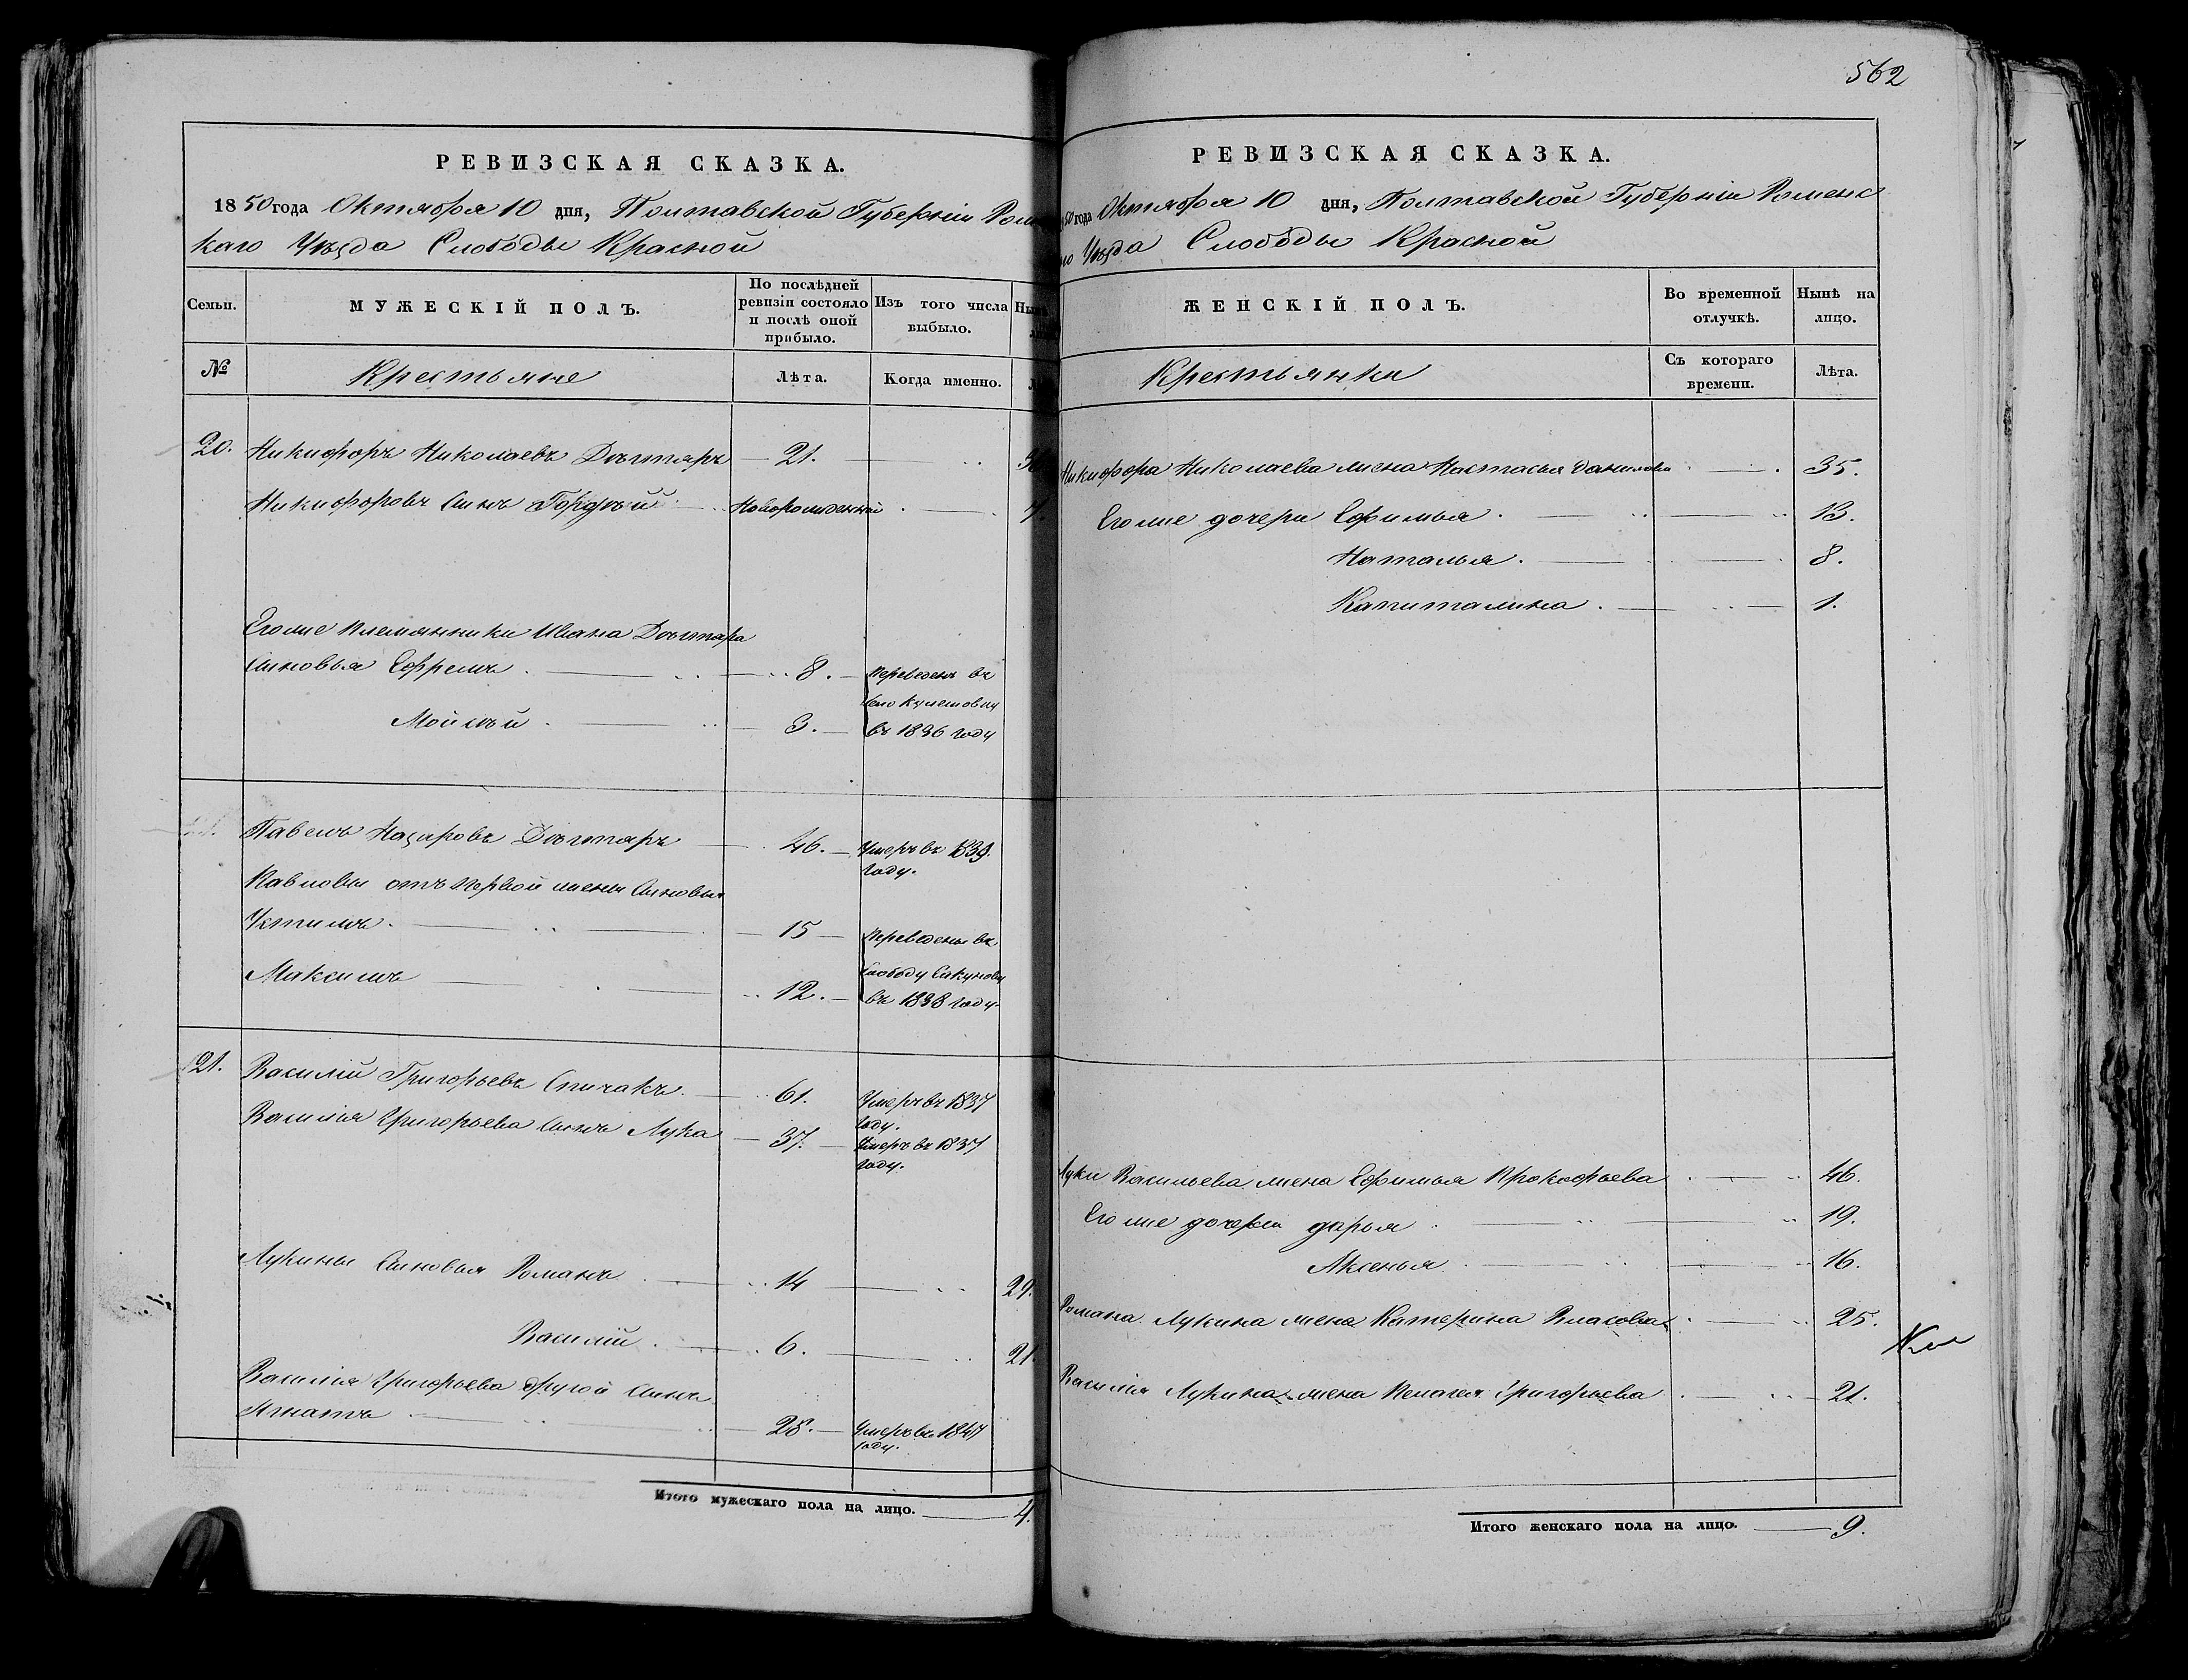 РЕВИЗСКАЯ СКАЗКА.
1850 года Октября 10 дня, Полтавской Губерніи Ромен
каго Уѣзда Слободы Красной
Семьи.
МУЖЕСКІЙ ПОЛЪ.
По послѣдней
ревизіи состояло
и послѣ оной
прибыло.
Изъ того числа
выбыло.
№
Крестьяне
Лѣта.
Когда именно.
20. Никифоръ Николаевъ Дѣгтяръ 21.
Никифоровъ Сынъ Гордѣй Новорожденной 7.
Егоже племянники Ивана Дѣгтяра
Сыновья Ефремъ 8. переведены въ
село
Мойсѣй 3. въ 1836 году
Павелъ Назаровъ Дѣгтяръ 46. Умеръ въ 1839
году.
Павловы отъ первой жены Сыновья
Устимъ 15 переведены въ
Слободу
Максимъ 12. въ 1838 году
21. Василій Григорьевъ Спичакъ 61. Умеръ въ 1837
году.
Василія Григорьева Сынъ Лука 37. Умеръ въ 1837
году.
Лукины Сыновья Романъ 14 29.
Василій 6. 21
Василія Григорьева другой Сынъ
Игнатъ 28. Умеръ въ 1847
году.
Итого мужескаго пола на лицо. 4.
562
РЕВИЗСКАЯ СКАЗКА.
50 года Октября 10 дня, Полтавской Губерніи Роменс
го Уѣзда Слободы Красной
ЖЕНСКІЙ ПОЛЪ.
Во временной
отлучкѣ.
Нынѣ на
лицо.
Крестьянки
Съ котораго
времени.
Лѣта.
Никифора Николаева жена Настасья Данилова 35.
Егоже дочери Ефимья 13.
Наталья 8.
Капиталина 1.
Луки Васильева жена Ефимья Прокофьева 46.
Егоже дочери Дарья 19.
Аксенья 16.
Романа Лукина жена Катерина Власова 25.
Василія Лукина жена Пелагея Григорьева 21.
Итого женскаго пола на лицо. 9.